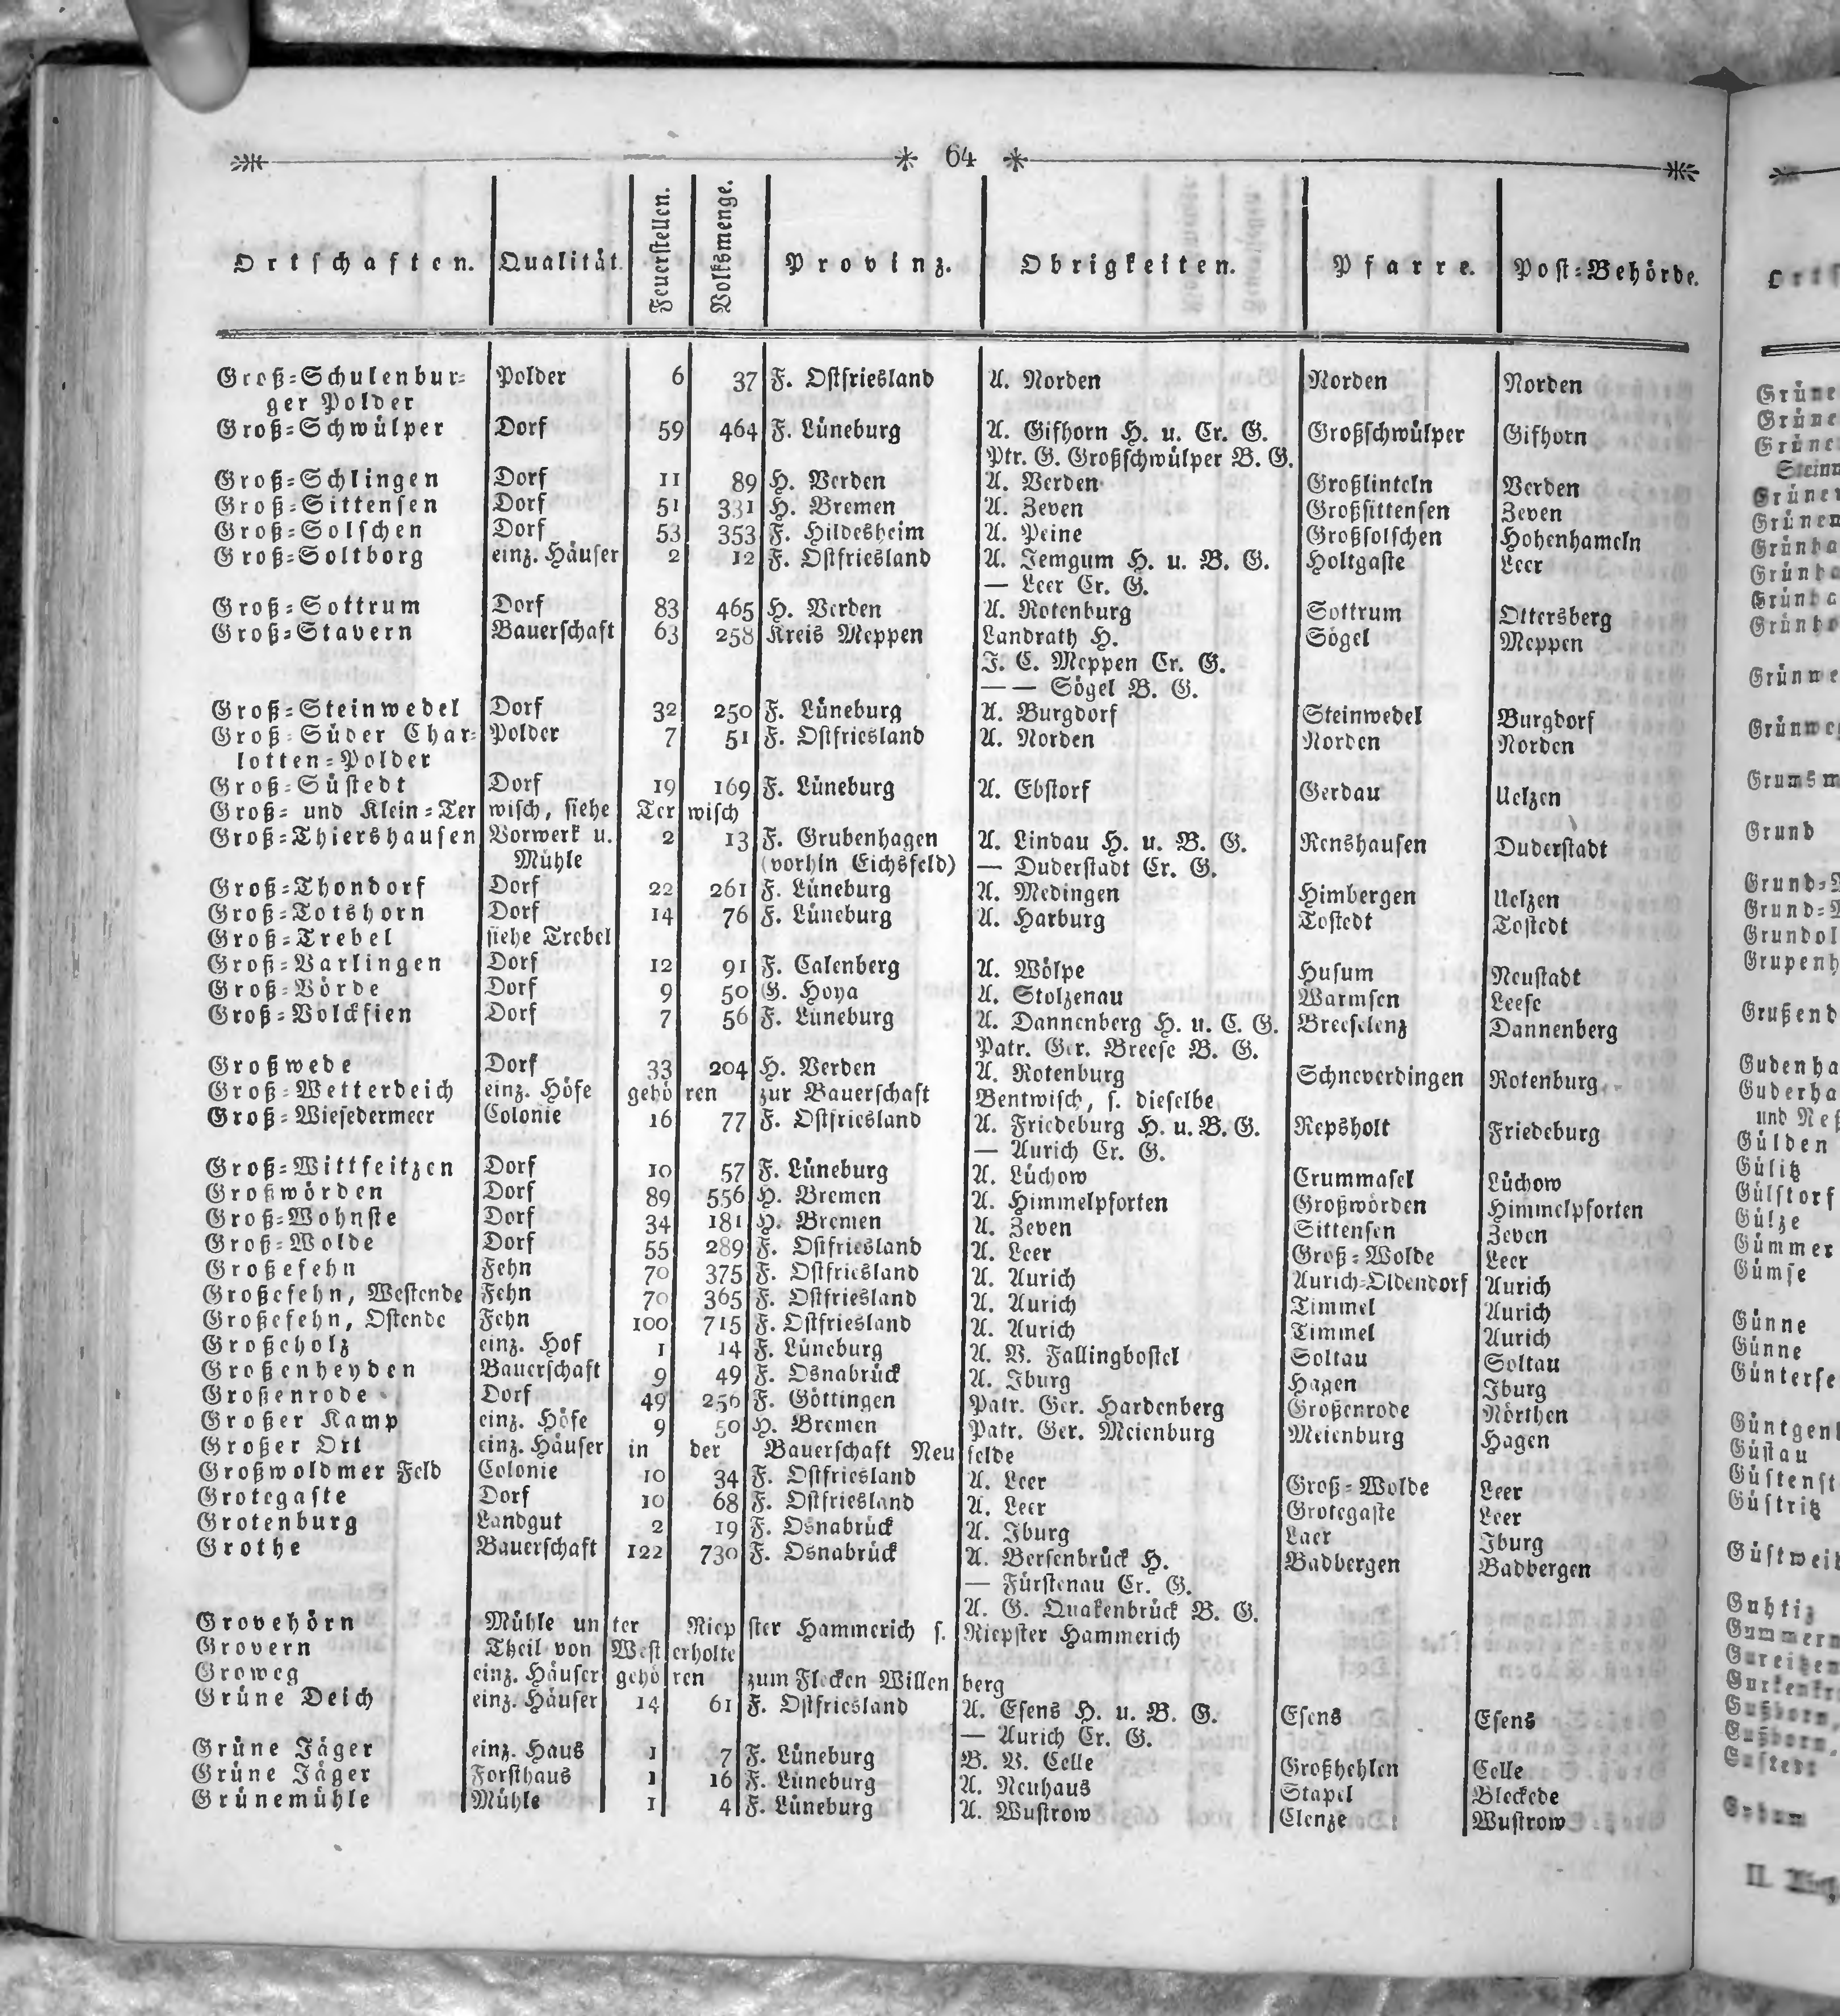 64
Ortschaften. Qualität. Feuerstellen. Volksmenge. Provinz. Obrigkeiten. Pfarre. Post=Behörde.
Groß=Schulenbur= Polder 6 37 F. Ostfriesland A. Norden Norden Norden
ger Polder
Groß=Schwülper Dorf 59 464 F. Lüneburg A. Gifhorn H. u. Cr. G. Großschwülper Gifhorn
Ptr. G. Großschwülper B. G.
Groß=Schlingen Dorf 11 89 H. Verden A. Verden Großlinteln Verden
Groß=Sittensen Dorf 51 331 H. Bremen A. Zeven Großsittensen Zeven
Groß=Solschen Dorf 53 353 F. Hildesheim A. Peine Großsolschen Hohenhameln
Groß=Soltborg einz. Häuser 2 12 F. Ostfriesland A. Jemgum H. u. B. G. Holtgaste Leer
— Leer Cr. G.
Groß=Sottrum Dorf 83 465 H. Verden A. Rotenburg Sottrum Ottersberg
Groß=Stavern Bauerschaft 63 258 Kreis Meppen Landrath H. Sögel Meppen
J. C. Meppen Cr. G.
— — Sögel B. G.
Groß=Steinwedel Dorf 32 250 F. Lüneburg A. Burgdorf Steinwedel Burgdorf
Groß=Süder Char= Polder 7 51 F. Ostfriesland A. Norden Norden Norden
lotten=Polder
Groß=Süstedt Dorf 19 169 F. Lüneburg A. Ebstorf Gerdau Uelzen
Groß= und Klein=Terwisch, siehe Terwisch
Groß=Thiershausen Vorwerk u. 2 13 F. Grubenhagen A. Lindau H. u. B. G. Renshausen Duderstadt
Mühle (vorhin Eichsfeld) — Duderstadt Cr. G.
Groß=Thondorf Dorf 22 261 F. Lüneburg A. Medingen Himbergen Uelzen
Groß=Totshorn Dorf 14 76 F. Lüneburg A. Harburg Tostedt Tostedt
Groß=Trebel siehe Trebel
Groß=Varlingen Dorf 12 91 F. Calenberg A. Wölpe Husum Neustadt
Groß=Vörde Dorf 9 50 G. Hoya A. Stolzenau Warmsen Leese
Groß=Volckfien Dorf 7 56 F. Lüneburg A. Dannenberg H. u. C. G. Breeselenz Dannenberg
Patr. Ger. Breese B. G.
Großwede Dorf 33 204 H. Verden A. Rotenburg Schneverdingen Rotenburg
Groß=Wetterdeich einz. Höfe gehören zur Bauerschaft Bentwisch, s. dieselbe
Groß=Wiesedermeer Colonie 16 77 F. Ostfriesland A. Friedeburg H. u. B. G. Repsholt Friedeburg
— Aurich Cr. G.
Groß=Wittfeitzen Dorf 10 57 F. Lüneburg A. Lüchow Crummasel Lüchow
Großwörden Dorf 89 556 H. Bremen A. Himmelpforten Großwörden Himmelpforten
Groß=Wohnste Dorf 34 181 H. Bremen A. Zeven Sittensen Zeven
Groß=Wolde Dorf 55 289 F. Ostfriesland A. Leer Groß=Wolde Leer
Großefehn Fehn 70 375 F. Ostfriesland A. Aurich Aurich=Oldendorf Aurich
Großefehn, Westende Fehn 70 365 F. Ostfriesland A. Aurich Timmel Aurich
Großefehn, Ostende Fehn 100 715 F. Ostfriesland A. Aurich Timmel Aurich
Großeholz einz. Hof 1 14 F. Lüneburg A. V. Fallingbostel Soltau Soltau
Großenheyden Bauerschaft 9 49 F. Osnabrück A. Iburg Hagen Iburg
Großenrode Dorf 49 256 F. Göttingen Patr. Ger. Hardenberg Großenrode Nörthen
Großer Kamp einz. Höfe 9 50 H. Bremen Patr. Ger. Meienburg Meienburg Hagen
Großer Ort einz. Häuser in der Bauerschaft Neufelde
Großwoldmer Feld Colonie 10 34 F. Ostfriesland A. Leer Groß=Wolde Leer
Grotegaste Dorf 10 68 F. Ostfriesland A. Leer Grotegaste Leer
Grotenburg Landgut 2 19 F. Osnabrück A. Iburg Laer Iburg
Grothe Bauerschaft 122 730 F. Osnabrück A. Bersenbrück H. Badbergen Badbergen
— Fürstenau Cr. G.
A. G. Quakenbrück B. G.
Grovehörn Mühle unter Riepster Hammerich s. Riepster Hammerich
Grovern Theil von Westerholte
Groweg einz. Häuser gehören zum Flecken Willenberg
Grüne Deich einz. Häuser 14 61 F. Ostfriesland A. Esens H. u. B. G. Esens Esens
— Aurich Cr. G.
Grüne Jäger einz. Haus 1 7 F. Lüneburg B. V. Celle Großhehlen Celle
Grüne Jäger Forsthaus 1 16 F. Lüneburg A. Neuhaus Stapel Bleckede
Grünemühle Mühle 1 4 F. Lüneburg A. Wustrow Clenze Wustrow
Grund
Gülden
Gülitz
Gülstorf
Gülze
Gümmer
Gümse
Günne
Günne
Güstau
Güstritz